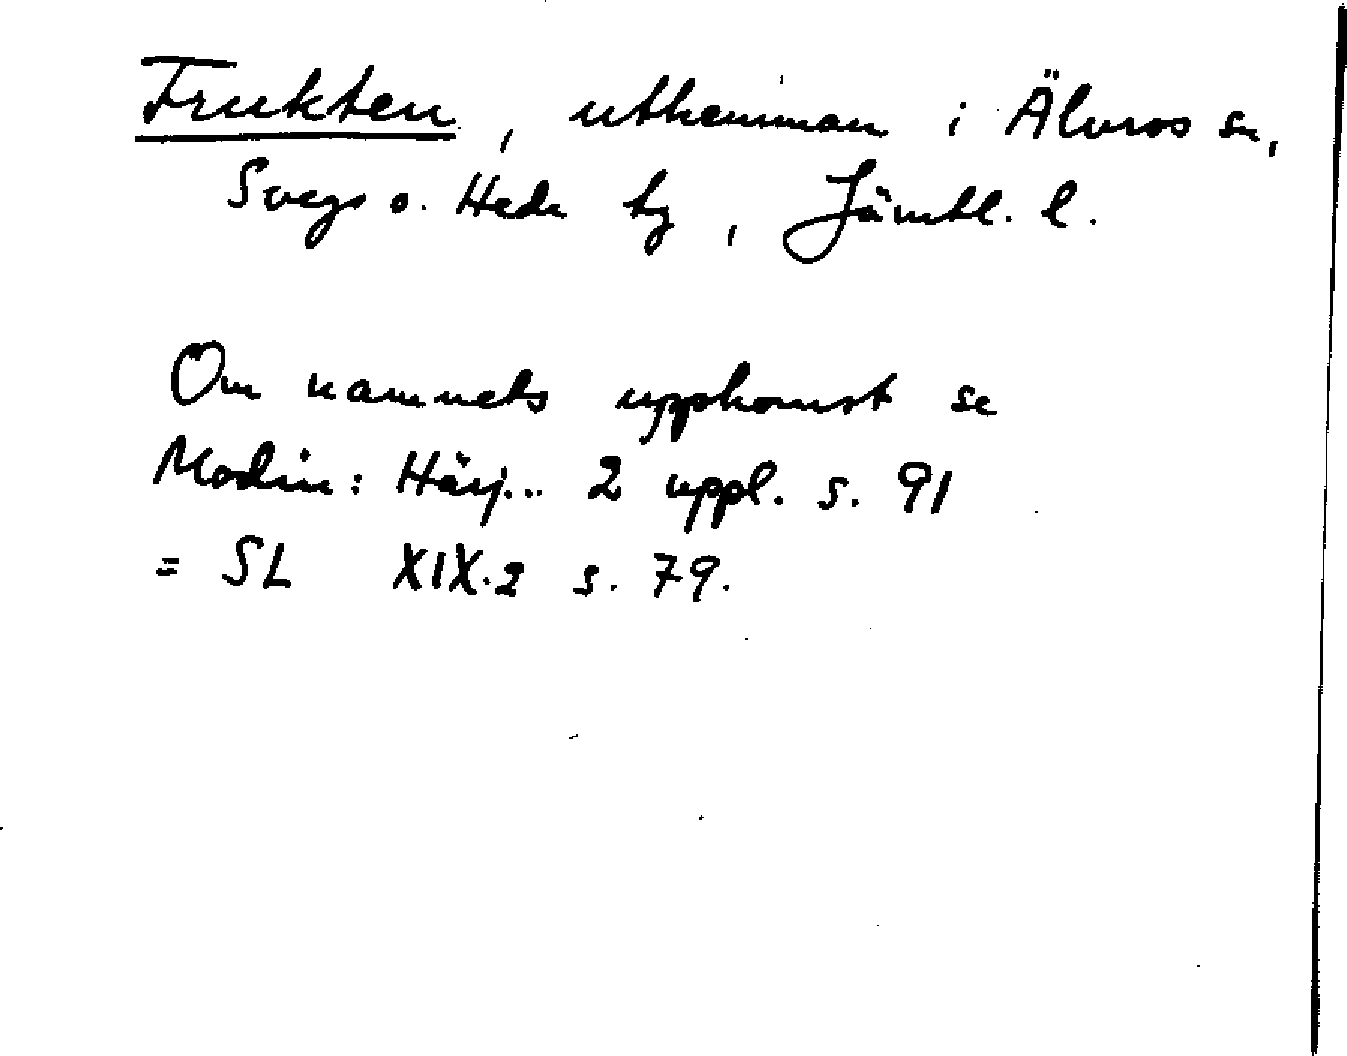 Frukten, uthemman i Älvros sn,
Svegs o. Hede tg, Jämtl. l.
Om namnets uppkomst se
Modin: Härj... 2 uppl. s. 91
= SL XIX.2 s. 79.